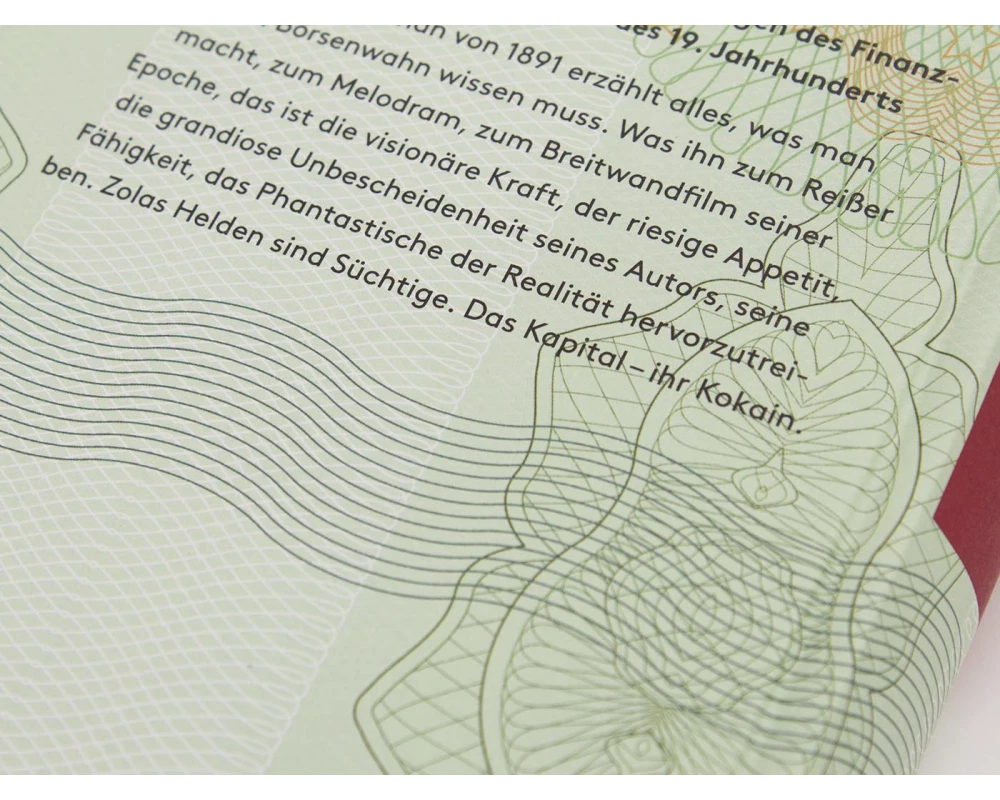 des Finanz-
des 19. Jahrhunderts
von 1891 erzählt alles, was man
Börsenwahn wissen muss. Was ihn zum Reißer
macht, zum Melodram, zum Breitwandfilm seiner
Epoche, das ist die visionäre Kraft, der riesige Appetit,
die grandiose Unbescheidenheit seines Autors, seine
Fähigkeit, das Phantastische der Realität hervorzutrei-
ben. Zolas Helden sind Süchtige. Das Kapital – ihr Kokain.